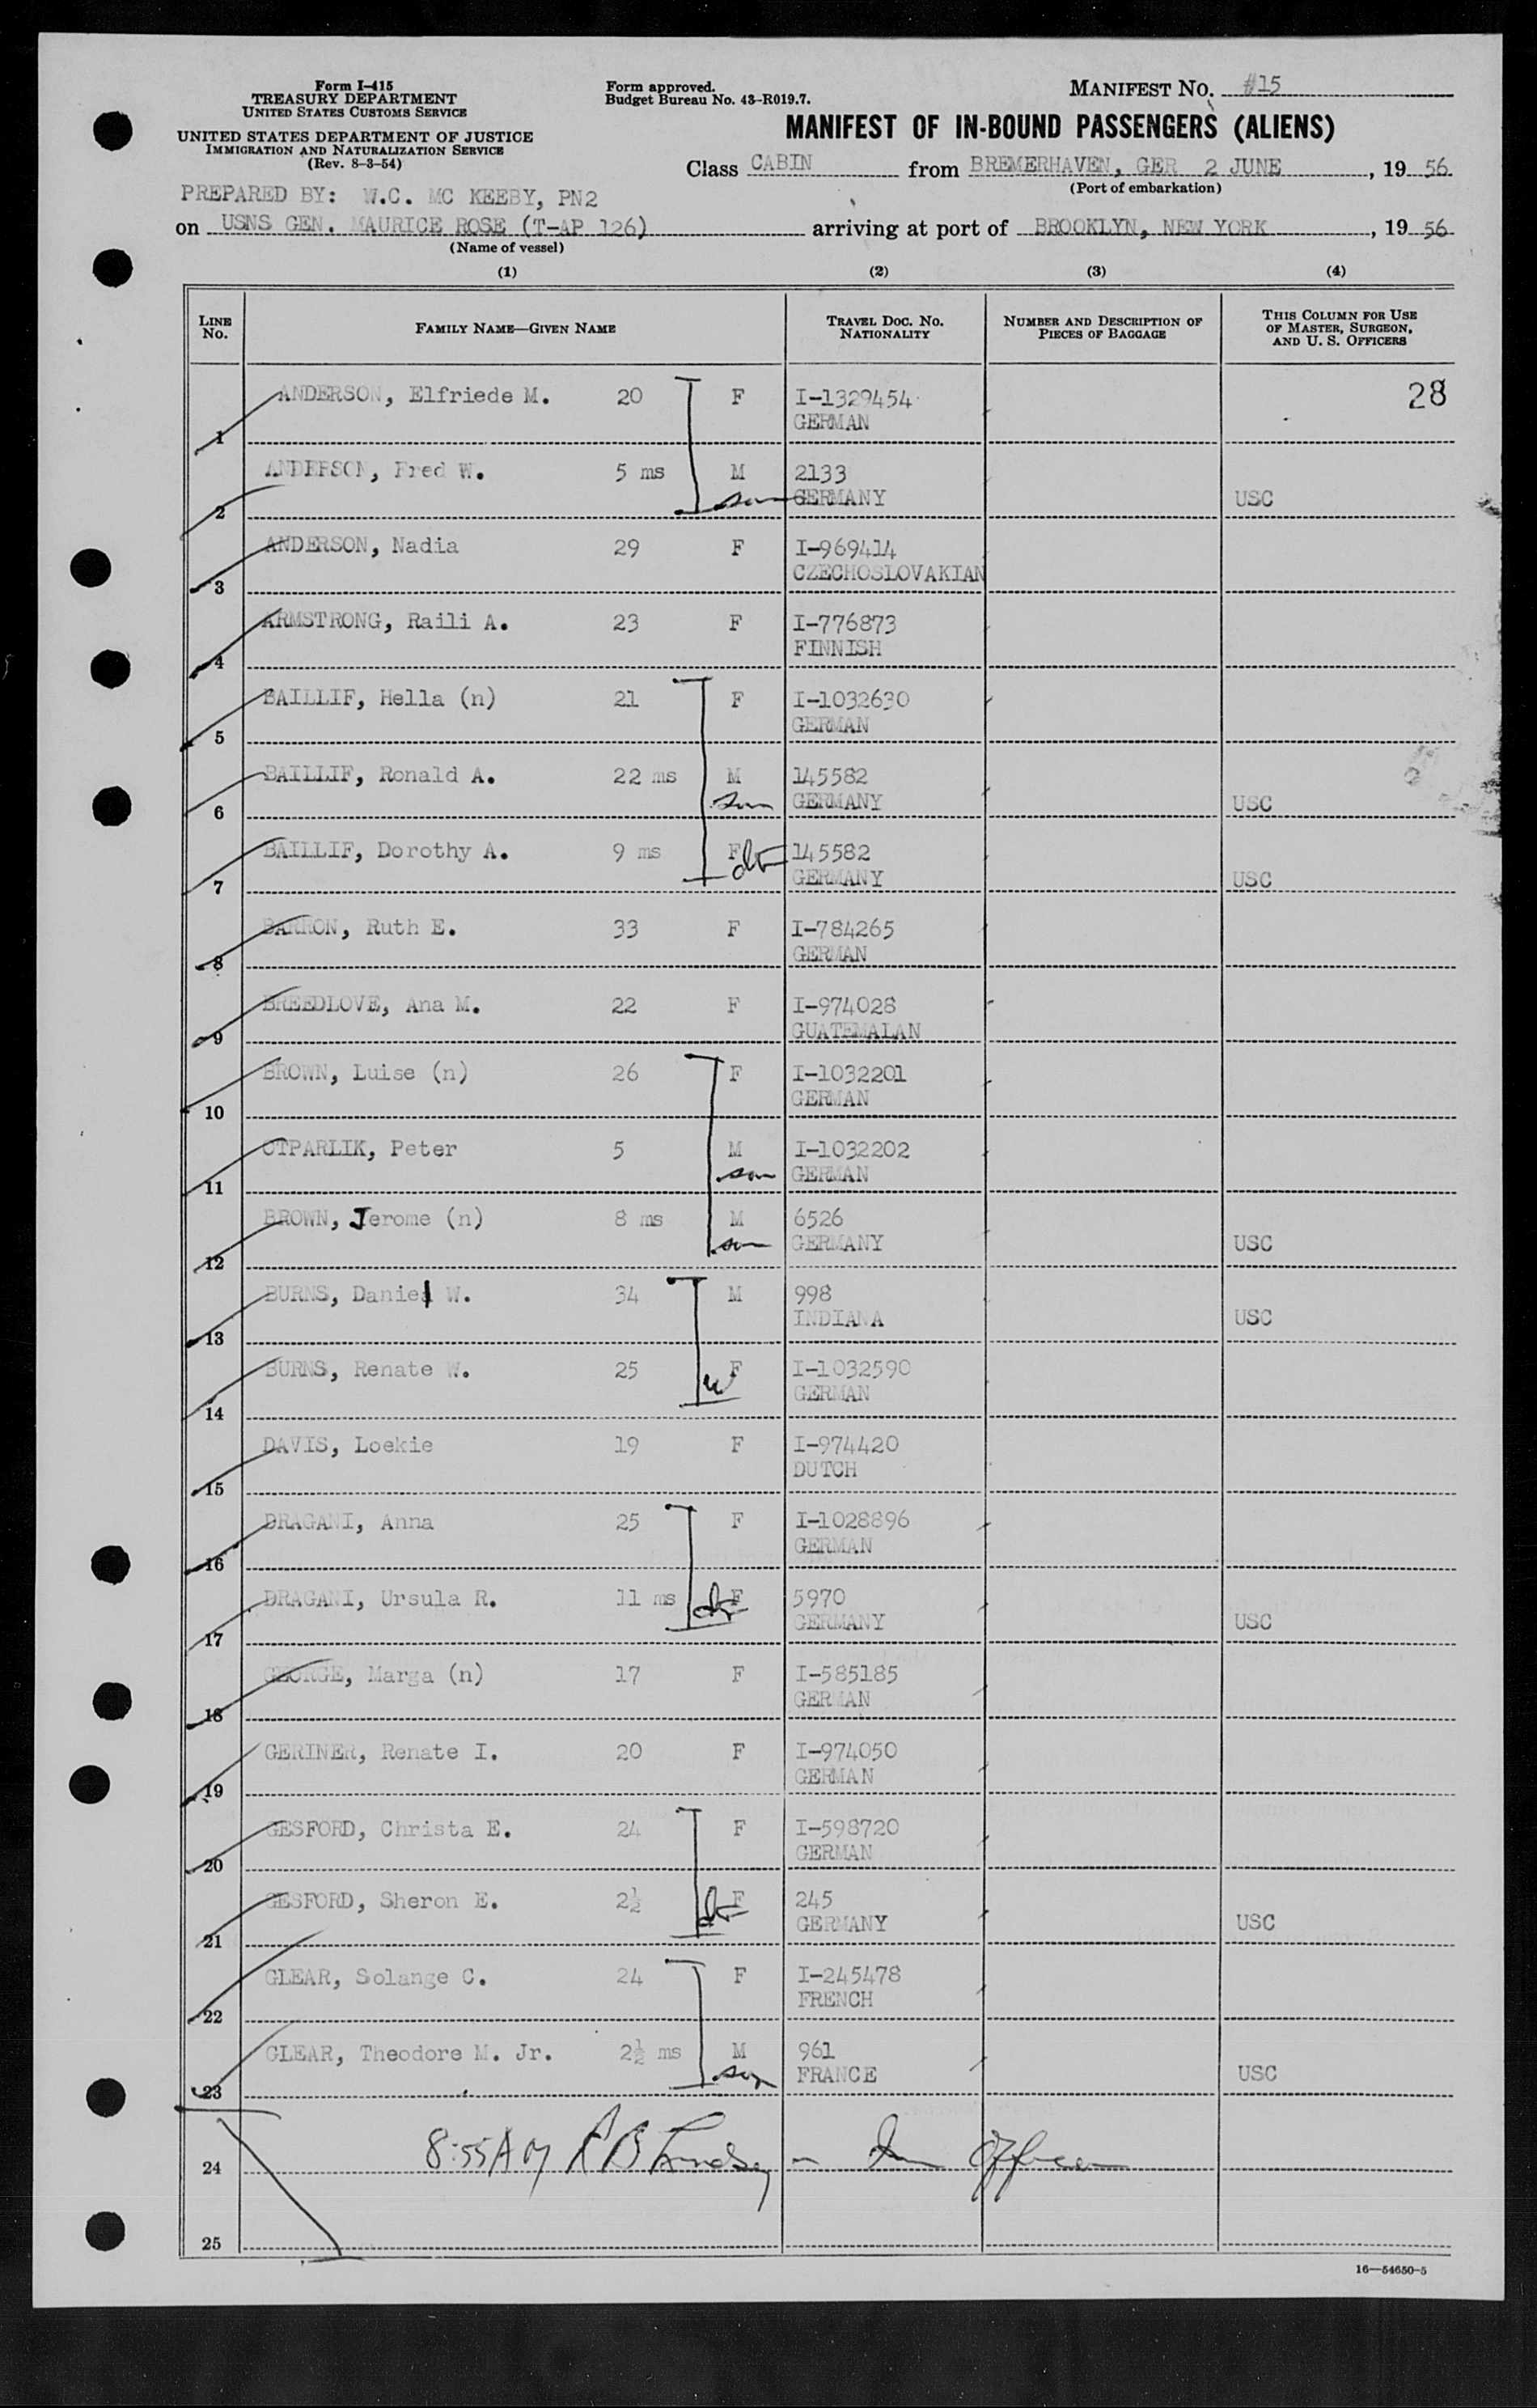 Form I-415
TREASURY DEPARTMENT
UNITED STATES CUSTOMS SERVICE
UNITED STATES DEPARTMENT OF JUSTICE
IMMIGRATION AND NATURALIZATION SERVICE
(Rev. 8-3-54)
Form approved.
Budget Bureau No. 43-R019.7.
MANIFEST NO. #15
MANIFEST OF IN-BOUND PASSENGERS (ALIENS)
Class CABIN from BREMERHAVEN, GER 2 JUNE, 19 56
(Port of embarkation)
PREPARED BY: W.C. MC KEEBY, PN2
on USNS GEN. MAURICE ROSE (T-AP 126) arriving at port of BROOKLYN, NEW YORK, 19 56
(Name of vessel)
(1) (2) (3) (4)
LINE NO. FAMILY NAME—GIVEN NAME TRAVEL DOC. NO. NATIONALITY NUMBER AND DESCRIPTION OF PIECES OF BAGGAGE THIS COLUMN FOR USE OF MASTER, SURGEON, AND U. S. OFFICERS
1 ANDERSON, Elfriede M. 20 F I-1329454 28
GERMAN
2 ANDERSON, Fred W. 5 ms M 2133
son GERMANY USC
3 ANDERSON, Nadia 29 F I-969414
CZECHOSLOVAKIAN
4 ARMSTRONG, Raili A. 23 F I-776873
FINNISH
5 BAILLIF, Hella (n) 21 F I-1032630
GERMAN
6 BAILLIF, Ronald A. 22 ms M 145582
son GERMANY USC
7 BAILLIF, Dorothy A. 9 ms F dt 145582
GERMANY USC
8 BARRON, Ruth E. 33 F I-784265
GERMAN
9 BREEDLOVE, Ana M. 22 F I-974028
GUATEMALAN
10 BROWN, Luise (n) 26 F I-1032201
GERMAN
11 OTPARLIK, Peter 5 M I-1032202
son GERMAN
12 BROWN, Jerome (n) 8 ms M 6526
son GERMANY USC
13 BURNS, Daniel W. 34 M 998
INDIANA USC
14 BURNS, Renate W. 25 F I-1032590
w GERMAN
15 DAVIS, Loekie 19 F I-974420
DUTCH
16 DRAGANI, Anna 25 F I-1028896
GERMAN
17 DRAGANI, Ursula R. 11 ms dt F 5970
GERMANY USC
18 GEORGE, Marga (n) 17 F I-585185
GERMAN
19 GERINER, Renate I. 20 F I-974050
GERMAN
20 GESFORD, Christa E. 24 F I-598720
GERMAN
21 GESFORD, Sheron E. 2½ dt F 245
GERMANY USC
22 GLEAR, Solange C. 24 F I-245478
FRENCH
23 GLEAR, Theodore M. Jr. 2½ ms M 961
son FRANCE USC
24 8:55 AM R B Lindsey - Im Officer
25
16—54650-5